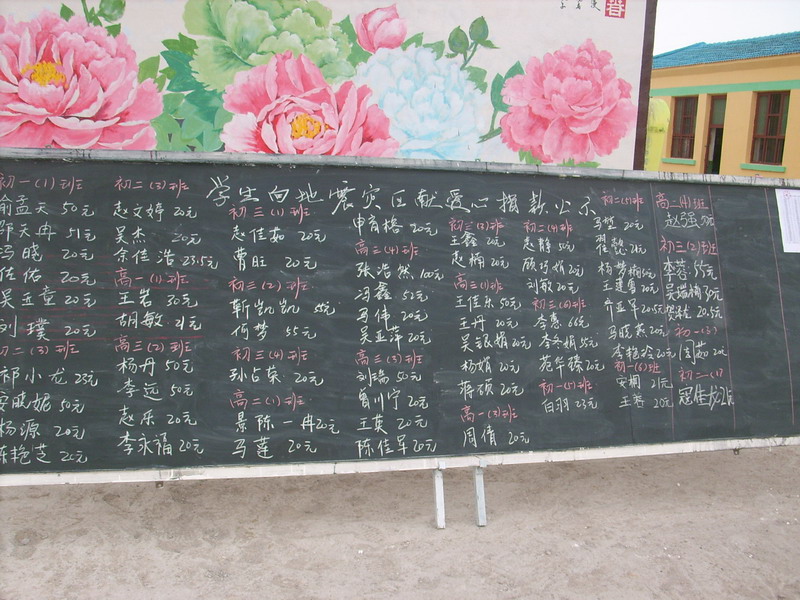 学生向地震灾区献爱心捐款公示
初一(1)班
俞孟天 50元
邵天冉 51元
冯晓 20元
佐佑 20元
吴玉童 20元
刘璞 20元
初二(3)班
祁小龙 23元
安晓妮 50元
杨源 20元
陈艳芝 20元
初二(3)班
赵文婷 20元
吴杰 20元
余佳浩 23.5元
高一(1)班
王岩 30元
胡敏 21元
高三(2)班
杨丹 50元
李远 50元
赵乐 20元
李永福 20元
初三(1)班
赵佳茹 20元
曹旺 20元
初三(2)班
靳凯凯 55元
何梦 55元
初三(4)班
孙占荣 20元
高二(1)班
景陈一冉 20元
马莲 20元
申育榕 20元
高三(4)班
张浩然 100元
冯鑫 50元
马伟 20元
吴亚萍 20元
高三(3)班
刘瑞 50元
鲁川宁 20元
王英 20元
陈佳军 20元
初三(3)班
王鑫 20元
赵楠 20元
高三(1)班
王佳乐 50元
王丹 20元
吴银娟 20元
杨娟 20元
蒋硕 20元
高一(3)班
周倩 20元
初二(4)班
赵静 50元
顾巧娟 20元
刘敏 20元
初三(6)班
李惠 66元
李冬梅 55元
苑华臻 20元
初一(5)班
白羽 23元
初二(5)班
马堃 20元
杨梦楠 50元
王建勇 20元
乔亚军 20.5元
马晓燕 20元
李艳玲 20元
初一(6)班
安桐 21元
王蓉 20元
高二(4)班
赵强 50元
初三(2)班
李蓉 55元
吴瑞楠 30元
20.5元
初一(3)
周茹 20元
初一(1)